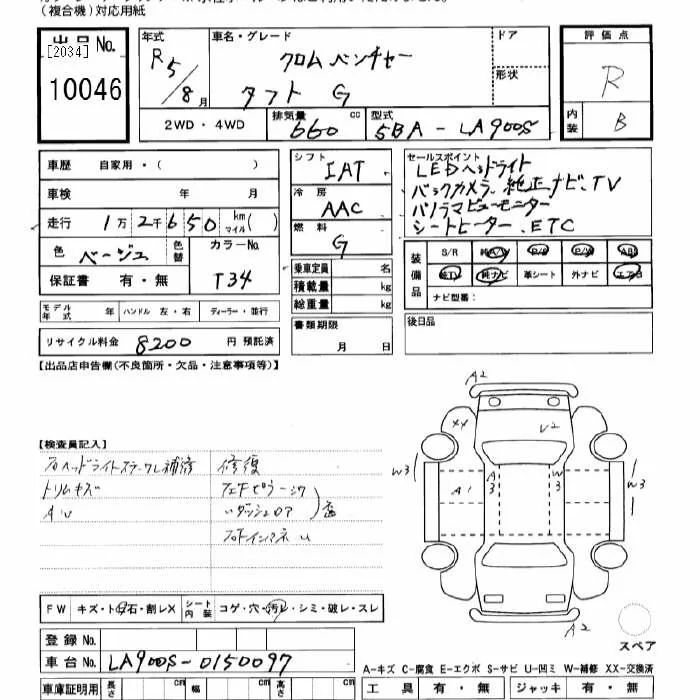 (複合機)対応用紙
出品 No. [2034] 10046
年式 R5/8月
車名・グレード クロムベンチャー
タフト G
ドア
形状
評価点 R
内装 B
2WD・4WD
排気量 660 cc
型式 5BA-LA900S
車歴 自家用・( )
車検 年 月
走行 1万2千650 km マイル( )
色 ベージュ 色替 カラーNo. T34
保証書 有・無
シフト IAT
冷房 AAC
燃料 G
乗車定員 名
積載量 kg
総重量 kg
セールスポイント
LEDヘッドライト
バックカメラ、純正ナビ、TV
パノラマビューモニター
シートヒーター、ETC
装備品 S/R 純A/W P/S P/W ABS
純TV 純ナビ 革シート 外ナビ エアB
ナビ型番:
モデル年式 年 ハンドル 左・右 ディーラー・並行
書類期限 月 日
後日品
リサイクル料金 8200 円 預託済
【出品店申告欄(不良箇所・欠品・注意事項等)】
【検査員記入】
修復
トリムキズ
AU
FW キズ・ト石・割レX シート内装 コゲ・穴・汚レ・シミ・破レ・スレ
A2
XX
U2
W3
A1
A3
W3
W3
A2
スペア
登録 No.
車台 No. LA900S-0150097
A-キズ C-腐食 E-エクボ S-サビ U-凹ミ W-補修 XX-交換済
車庫証明用 長さ cm 幅 cm 高さ cm
工具 有・無 ジャッキ 有・無